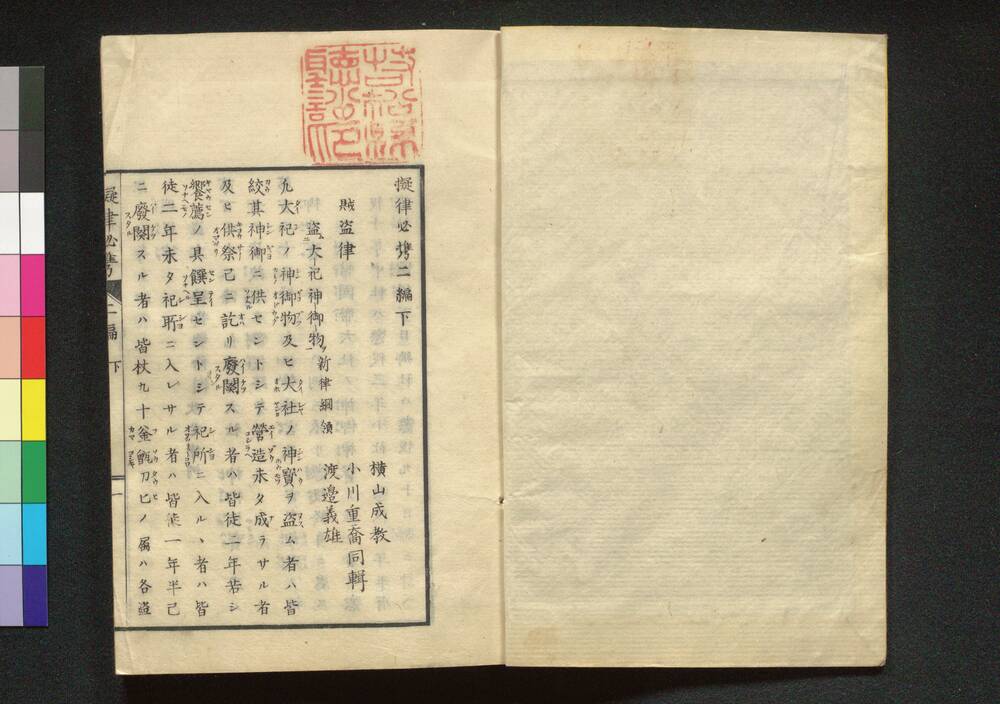 擬律必携二編下
横山成教
小川重喬同輯
渡邉義雄
賊盗律
盗大祀神御物 新律綱領
凡大祀ノ神御物及ヒ大社ノ神寳ヲ盗ム者ハ皆
絞其神御ニ供セントシテ營造未タ成ラサル者
及ヒ供祭已ニ訖リ廢闕スル者ハ皆徒二年若シ
饗薦ノ具饌呈セントシテ祀所ニ入ル丶者ハ皆
徒二年未タ祀所ニ入レサル者ハ皆徒一年半已
ニ廢闕スル者ハ皆杖九十釜甑刀匕ノ屬ハ各盗
擬律必携 二編 下 一